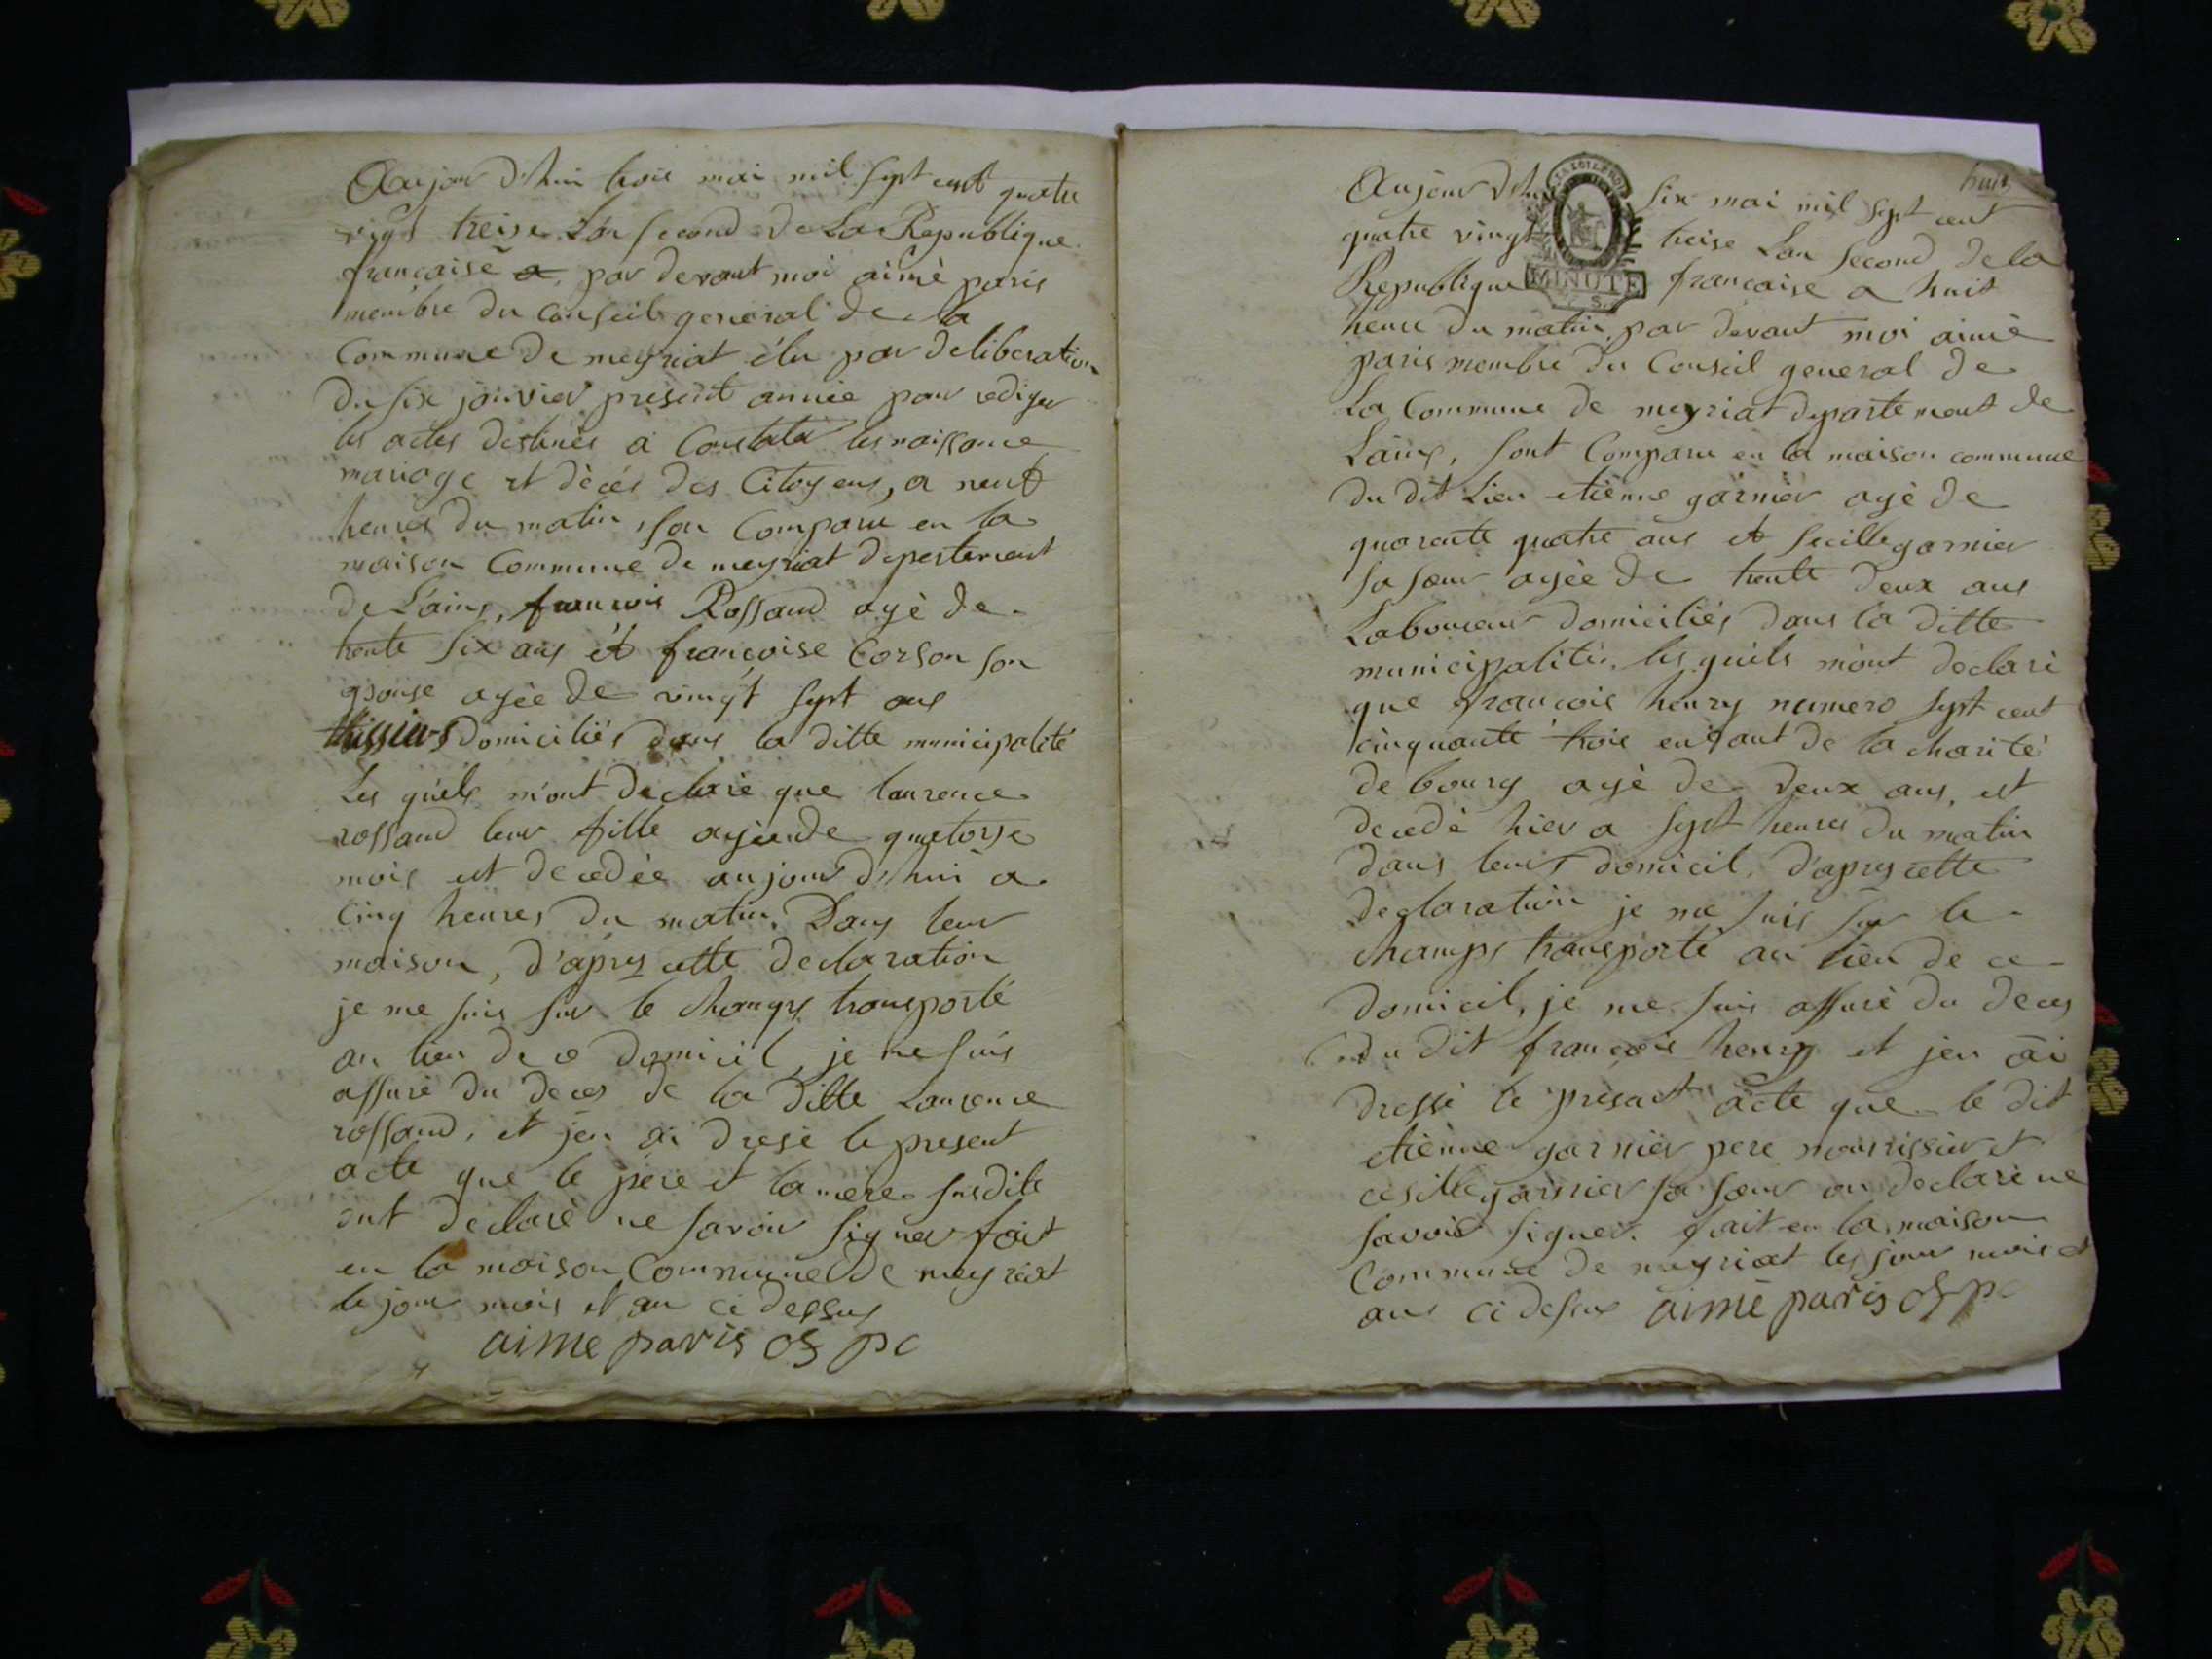 Aujour d'hui trois mai mil sept cent quatre
vigt treise L'an second de La Republique
francaise a par devant moi aimè paris
membre du Conseil general de la
Commune de meyriat élu par deliberation
du six janvier present année pour rediger
les actes destinés a Constater les naissance
mariage et dècés des Citoyens, a neuf
heures du matin, son Comparu en la
maison Commune de meyriat depertement
de L'ains, francois Rossand agè de
trente six ans et françoise Corson son
epouse agée de vingt sept ans
tissiers domiciliés dans la ditte municipalité
Les quels m'ont declaré que laurence
rossand leur fille agée de quatorze
mois est decedée aujour d'hui a
Cinq heures du matin. Dans leur
maison, d'apres cette declaration
je me suis sur le champs transporté
au lieu de ce domicil, je me suis
assuré du deces de la ditte Laurence
rossand, et jen ai dresé le present
acte que le père et la mere susdite
ont declarè ne savoir signer fait
en la maison Commune de meyriat
le jour mois et an ci dessus
aime paris of pc
huit
Aujour d'hui six mai mil sept cent
LA LOI LE ROI
quatre vingt treise Lan second de la
Republique francaise a huit
MINUTE
S.
heure du matin par devant moi aimè
paris membre du Conseil general de
La Commune de meyriat departement de
Lains, sont Comparu en la maison commune
du dit Lieu etiènne garnièr agè de
quarente quatre ans et secille garnier
sa sœur agèe de trente deux ans
Laboureur domiciliés dans la ditte
municipalitée. les quels m'ont declarè
que francois henry numero sept cent
cinquante trois enfant de la charité
de bourg agè de deux ans, est
decedè hier a sept heures du matin
dans leurs domicil, d'apres cette
declaration je me suis sur le
champs transporté au lieu de ce
domicil, je me suis assurè du deces
du dit francois henry et jen ai
dressé le présent acte que le dit
etiènne garnièr pere nourrissier et
cesille garnier sa sœur on declarè ne
savoir signer. fait en la maison
Commune de meyriat les jour mois et
ans ci desus aimè paris of pc